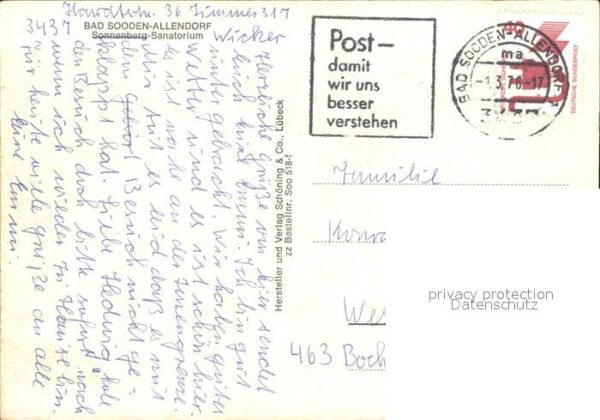 Hardtstr. 36 Zimmer 317
BAD SOODEN-ALLENDORF
3437 Sonnenberg-Sanatorium
Wicker
Herzliche Grüße von hier sendet
Euch Emmi Ich bin gut
untergebracht. Wir haben gutes
Wetter und es ist schön hier.
es ist nahe an der Zonengrenze
Mir tut es leid daß es mit
den Besuch nicht ge-
klappt hat. Liebe Hedwig hole
den Besuch doch bitte sofort nach
wenn ich wieder zu Hause bin.
Für heute viele Grüße an alle
Eure Emmi
Hersteller und Verlag Schöning & Co., Lübeck
zz Bestellnr. Soo 518-f
Post–
damit
wir uns
besser
verstehen
BAD SOODEN-ALLENDORF 1
ma
-1.3.76-17
40
DEUTSCHE BUNDESPOST
Familie
Konra
We
463 Boch
privacy protection
Datenschutz